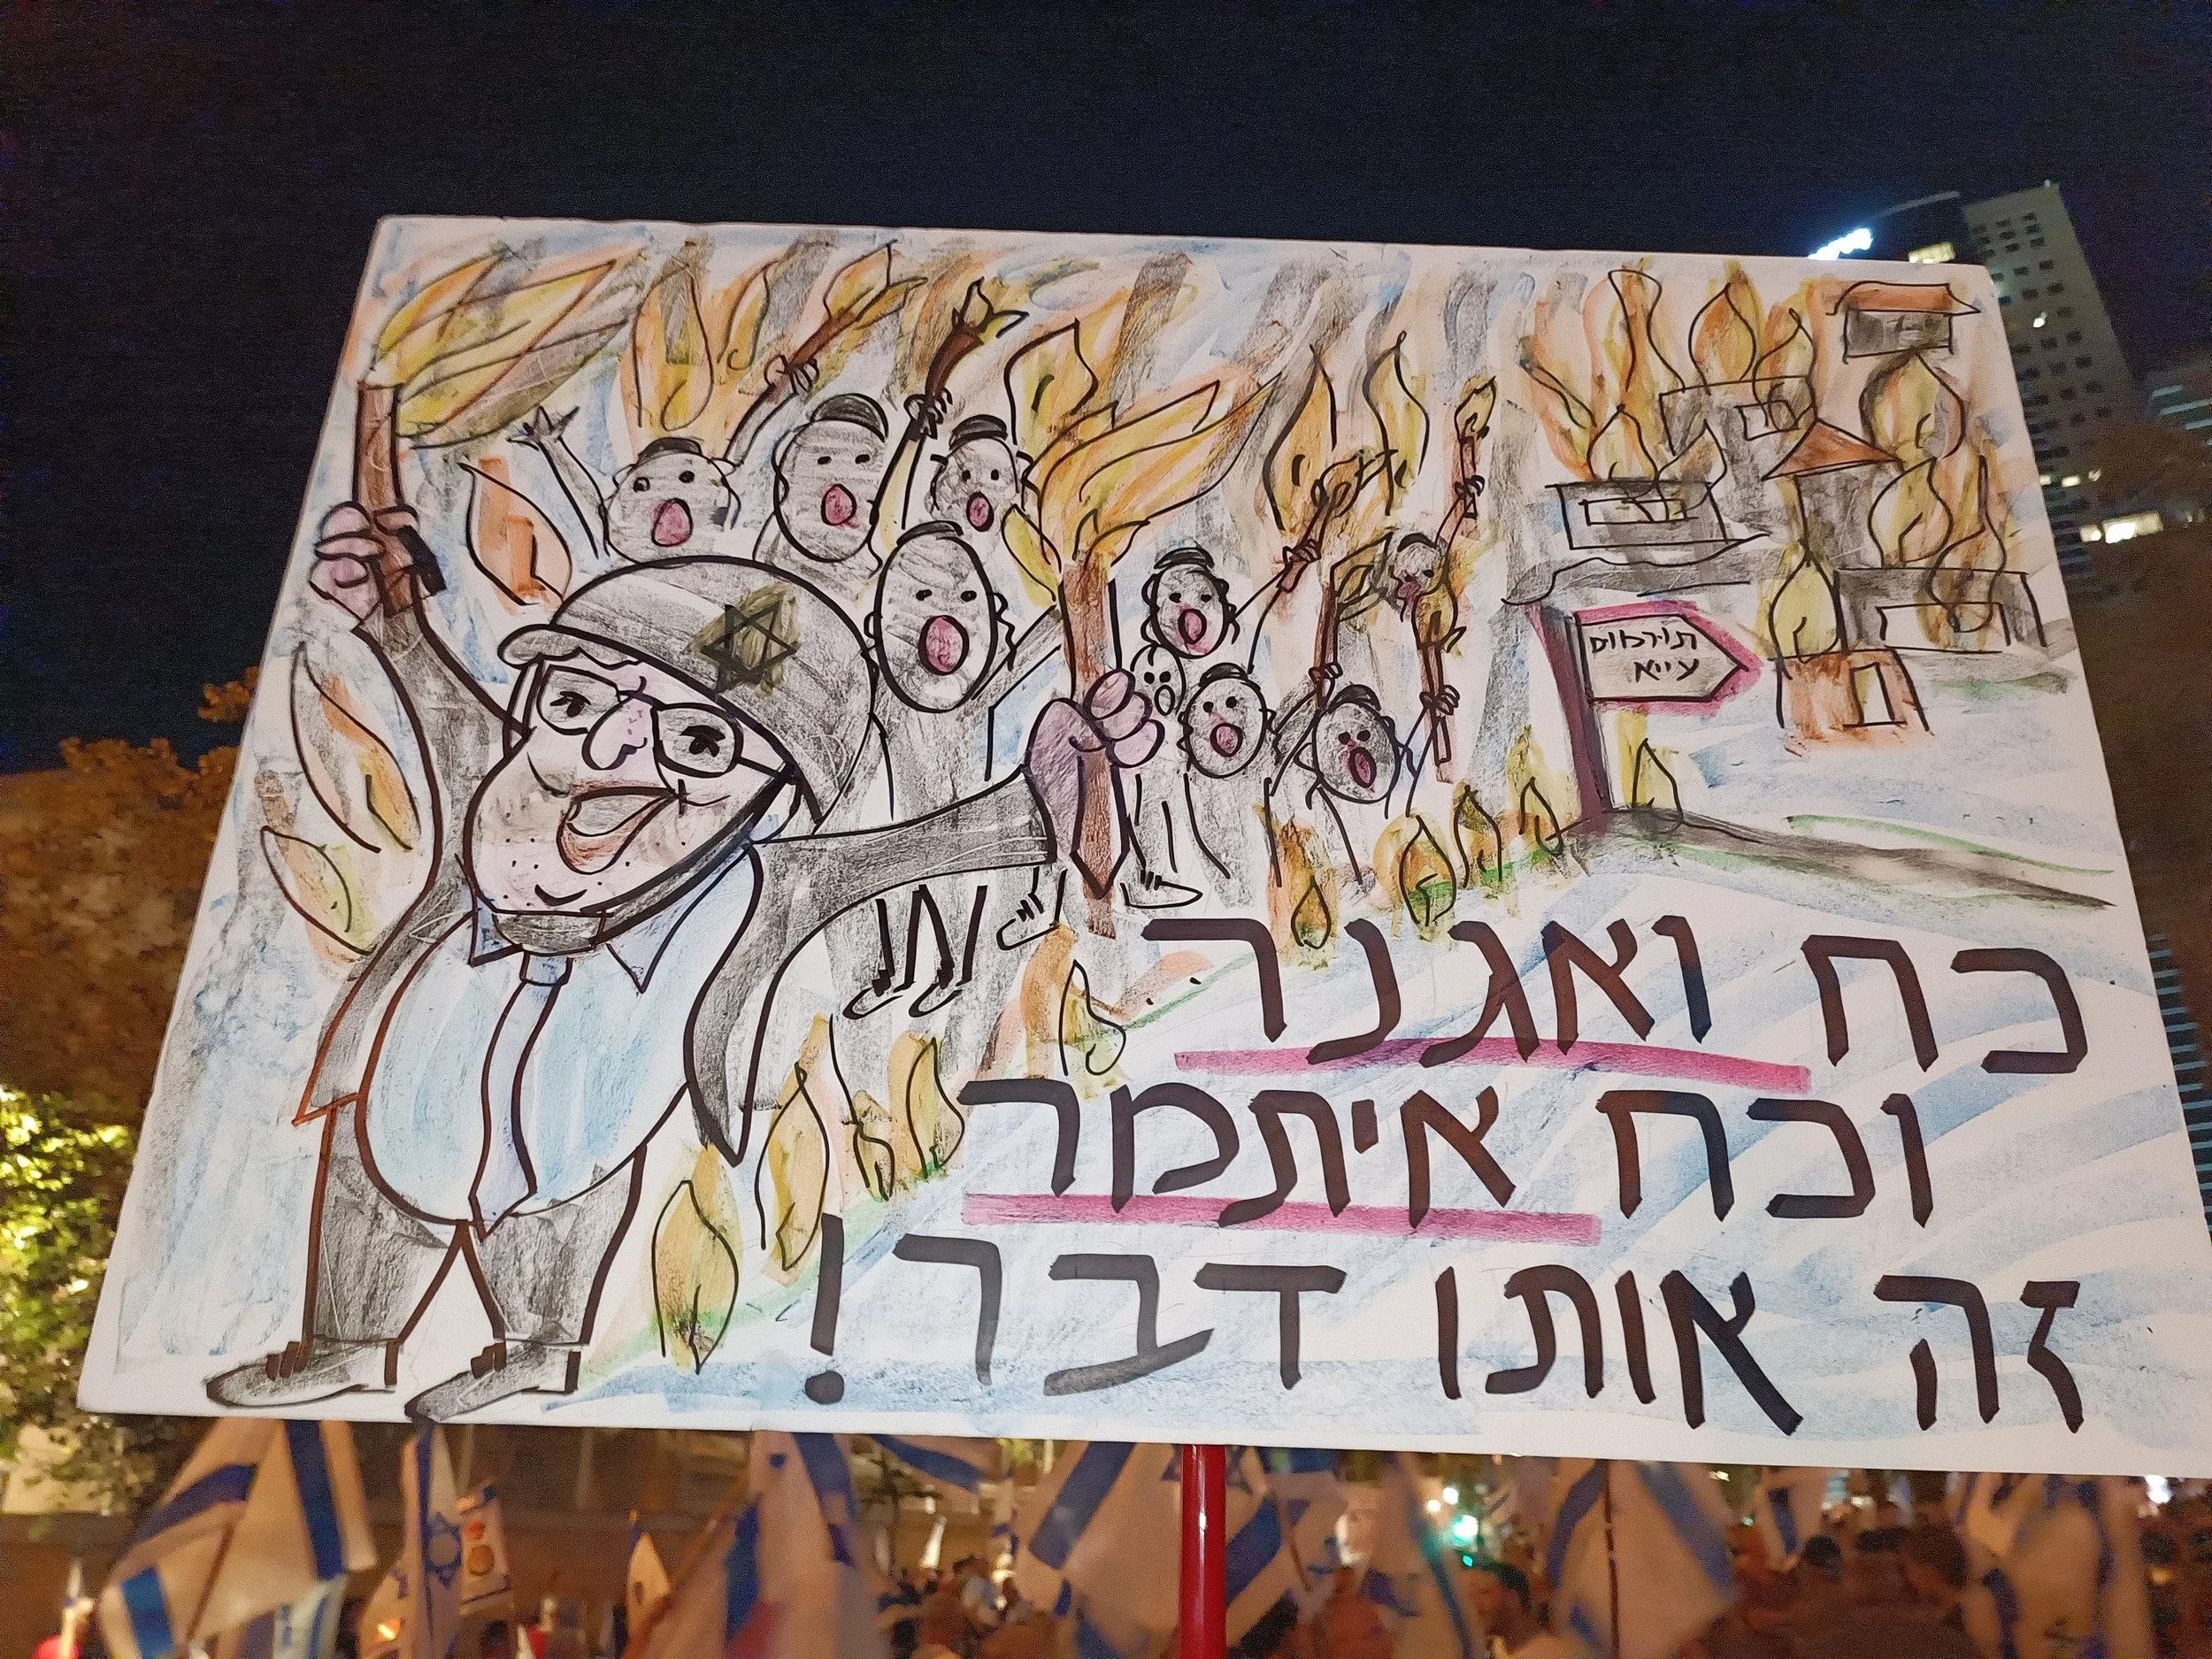 תורמוס
עייא
כח ואגנר
וכח איתמר
זה אותו דבר!